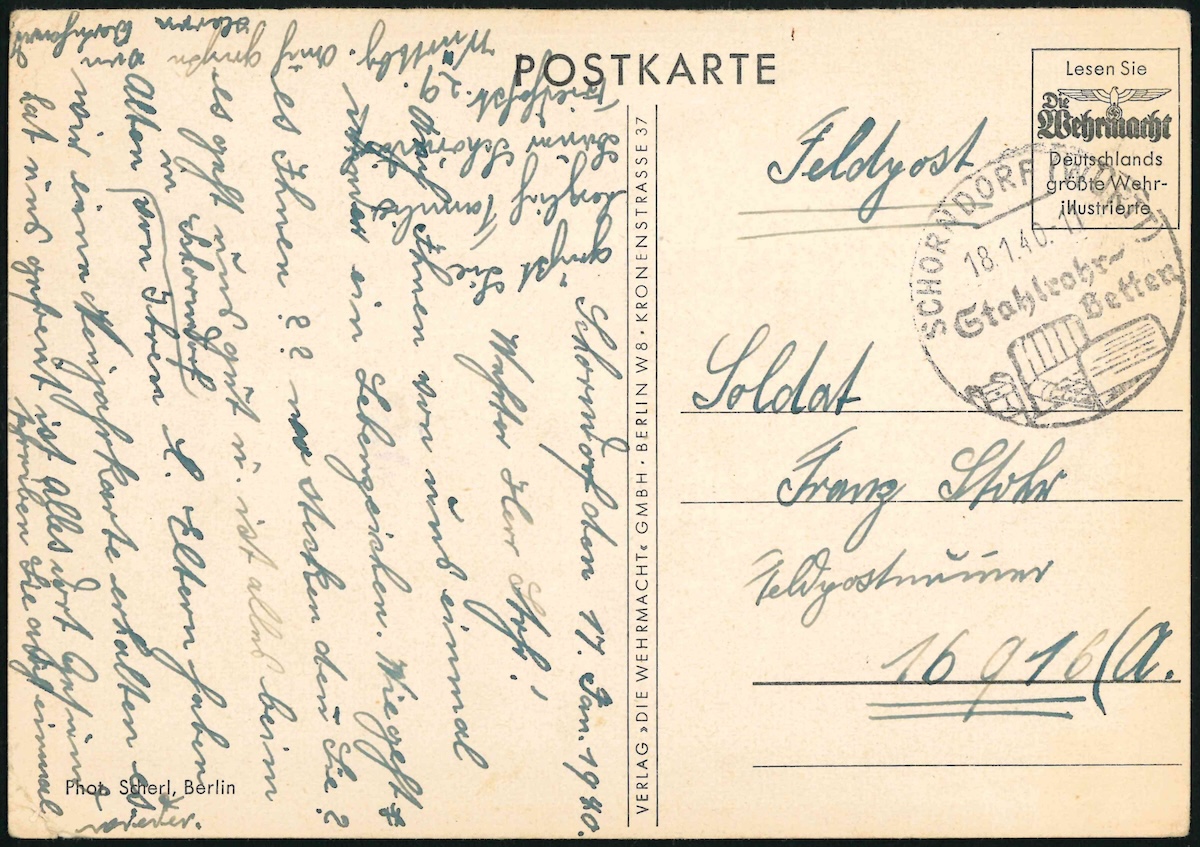 POSTKARTE
Lesen Sie
Die
Wehrmacht
Deutschlands
größte Wehr-
illustrierte
SCHORNDORF (WÜRTT)
18.1.40.-17
Stahlrohr-
Betten
Feldpost
Soldat
Franz Stohr
Feldpostnummer
16916 (A.
VERLAG »DIE WEHRMACHT« GMBH · BERLIN W8 · KRONENSTRASSE 37
Phot. Scherl, Berlin
Schorndorf den 17. Jan. 1940.
Werter Herr Stohr!
Auch Ihnen von uns einmal
ein Lebenszeichen. Wie geht
es Ihnen ?? wo stecken den Sie?
es geht uns gut u. ist alles beim
Alten in Schorndorf
von Ihren l. Eltern haben
wir eine Neujahrskarte erhalten es
hat uns gefreut ist alles dort gesund
schreiben Sie auch einmal
wieder.
grüßt Sie
herzlich Familie